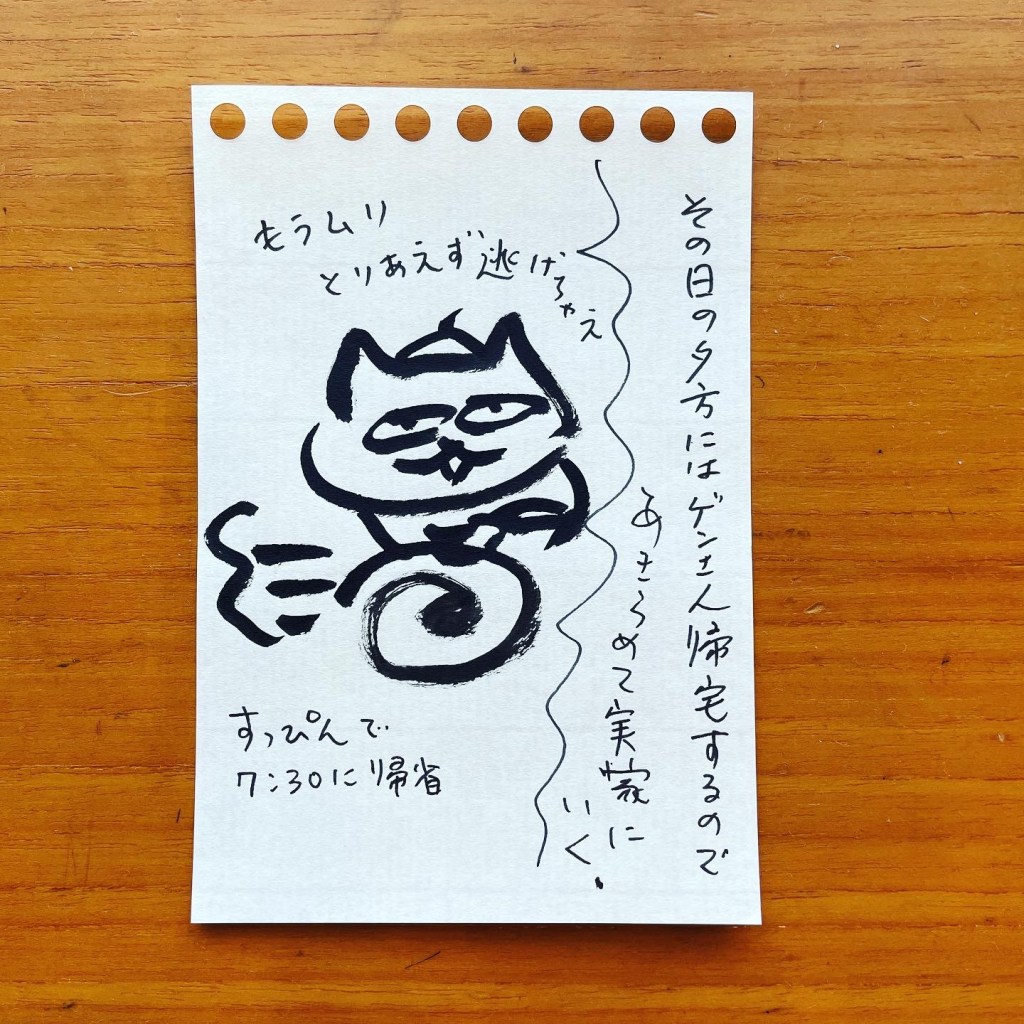 その日の夕方にはゲンさん帰宅するので
あきらめて実家に
いく。
もうムリ
とりあえず逃げちゃえ
すっぴんで
7:30に帰省